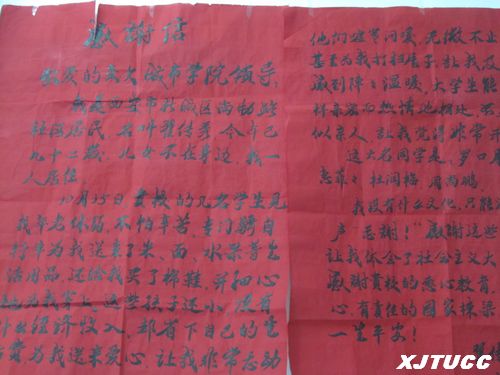 感謝信
敬爱的交大城市学院领导:
我是西安市新城区尚勤路
社区居民, 名叫翟传秀 今年已
九十二岁, 儿女不在身边, 我一
人居住。
10月25日贵校的几名学生见
我年老体弱,不怕辛苦,专门骑自
行车为我送来了米、面、水果等生
活用品,还给我买了棉鞋,并细心
地为我穿上 这些孩子还小,没有
什么经济收入, 却省下自己的生
活费为我送来爱心 让我非常感动
他们嘘寒问暖,无微不
甚至为我打扫房子,让我及
感到阵阵温暖,大学生能
样亲密而热情地相处,
似亲人, 让我觉得非常
这六名同学是, 罗
杜闰梅 周尚鹏
我没有什么文化,只能
声 志謝! 感谢这些
让我体会了社会主义大
感谢贵校的悉心教育,
心,有责任的国家栋梁
一生平安!
XJTUCC